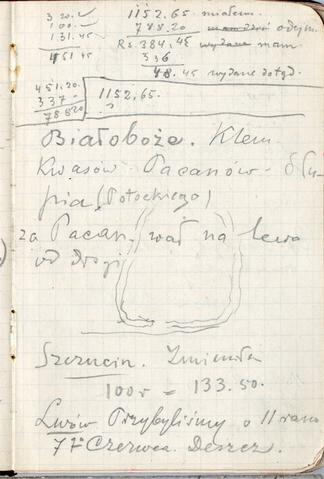 320.– 1152.65. miałem
100.– 788.20 odejm.
131.45 Rs. 384.45 wydane mam
451.45 336
48.45 wydane dotąd.
451.20. 1152.65.
337.0 ?
788.20
Białoboże. Klem
Kwasów – Pacanów – Słu-
pia (Potockiego)
za Pacan. wał na lewo
od drogi
Szczucin. Zmieniłem
100r = 133.50.
Lwów Przybyliśmy o 11 rano
7го Czerwca. Deszcz.